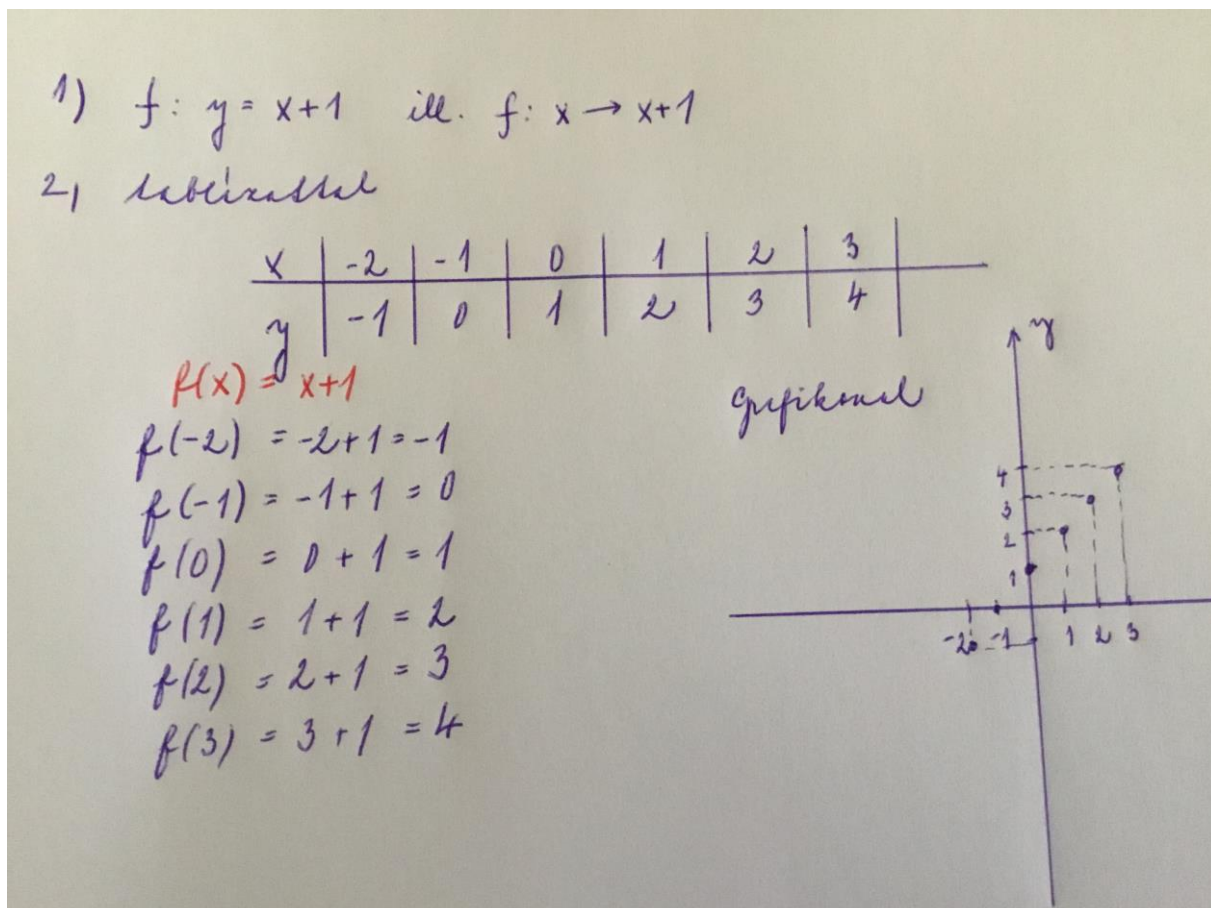 1) f: y = x+1 ill. f: x → x+1
2, táblázattal
x | -2 | -1 | 0 | 1 | 2 | 3 |
y | -1 | 0 | 1 | 2 | 3 | 4 |
f(x) = x+1
f(-2) = -2+1 = -1
f(-1) = -1+1 = 0
f(0) = 0+1 = 1
f(1) = 1+1 = 2
f(2) = 2+1 = 3
f(3) = 3+1 = 4
Grafikonnal
y
4
3
2
1
-2 -1 1 2 3